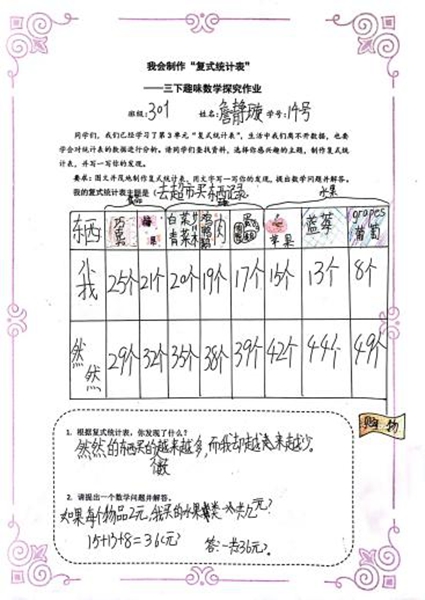 我会制作“复式统计表”
——三下趣味数学探究作业
班级:301 姓名:詹静璇 学号:14号
同学们，我们已经学习了第3单元“复式统计表”，生活中我们离不开数据，也要
学会对统计表的数据进行分析。请同学们查找资料，选择你感兴趣的主题，制作复式统
计表，并写一写你的发现。
要求：图文并茂地制作复式统计表，用文字写一写你的发现，提出数学问题并解答。
我的复式统计表主题是(去超市买东西记录
水果
东西 白菜 青菜 肉 苹果 蓝莓 grapes 葡萄
我 25个 21个 20个 19个 17个 15个 13个 8个
然然 29个 32个 35个 38个 39个 42个 44个 49个
购物
1. 根据复式统计表，你发现了什么？
然然的东西买的越来越多，而我却越来越少。
2. 请提出一个数学问题并解答。
如果每个物品2元，我买的水果类一共几元？
15+13+8=36(元) 答:一共36元。